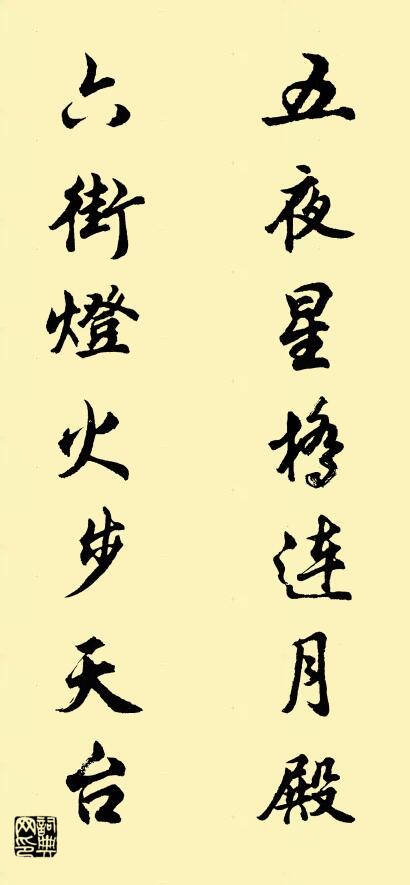 五夜星橋連月殿
六街燈火步天台
詞典网印